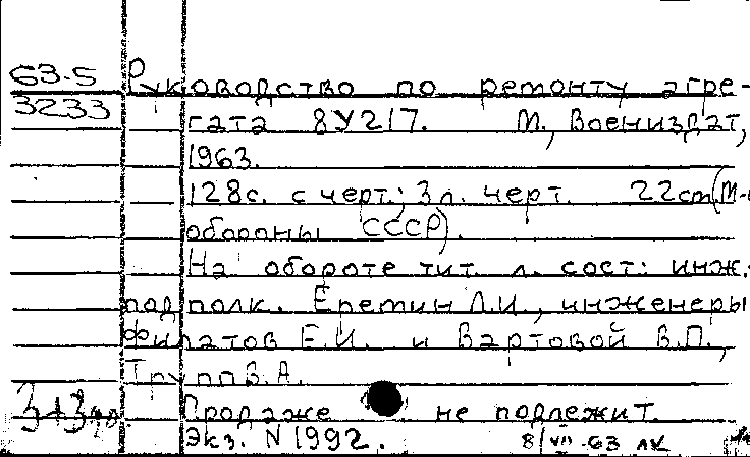 63-5 Руководство по ремонту агре-
3233 гата 8У217. М., Воениздат,
1963.
128с. с черт.; 3 л. черт. 22cm (М-
обороны СССР).
На обороте тит. л. сост: инж.-
подполк. Еретин Л.И., инженеры
Филатов Е.И. и Вартовой В.П.,
Трупп В.А.
Продаже не подлежит.
Экз. N 1992. 8/VII-63 ЛК